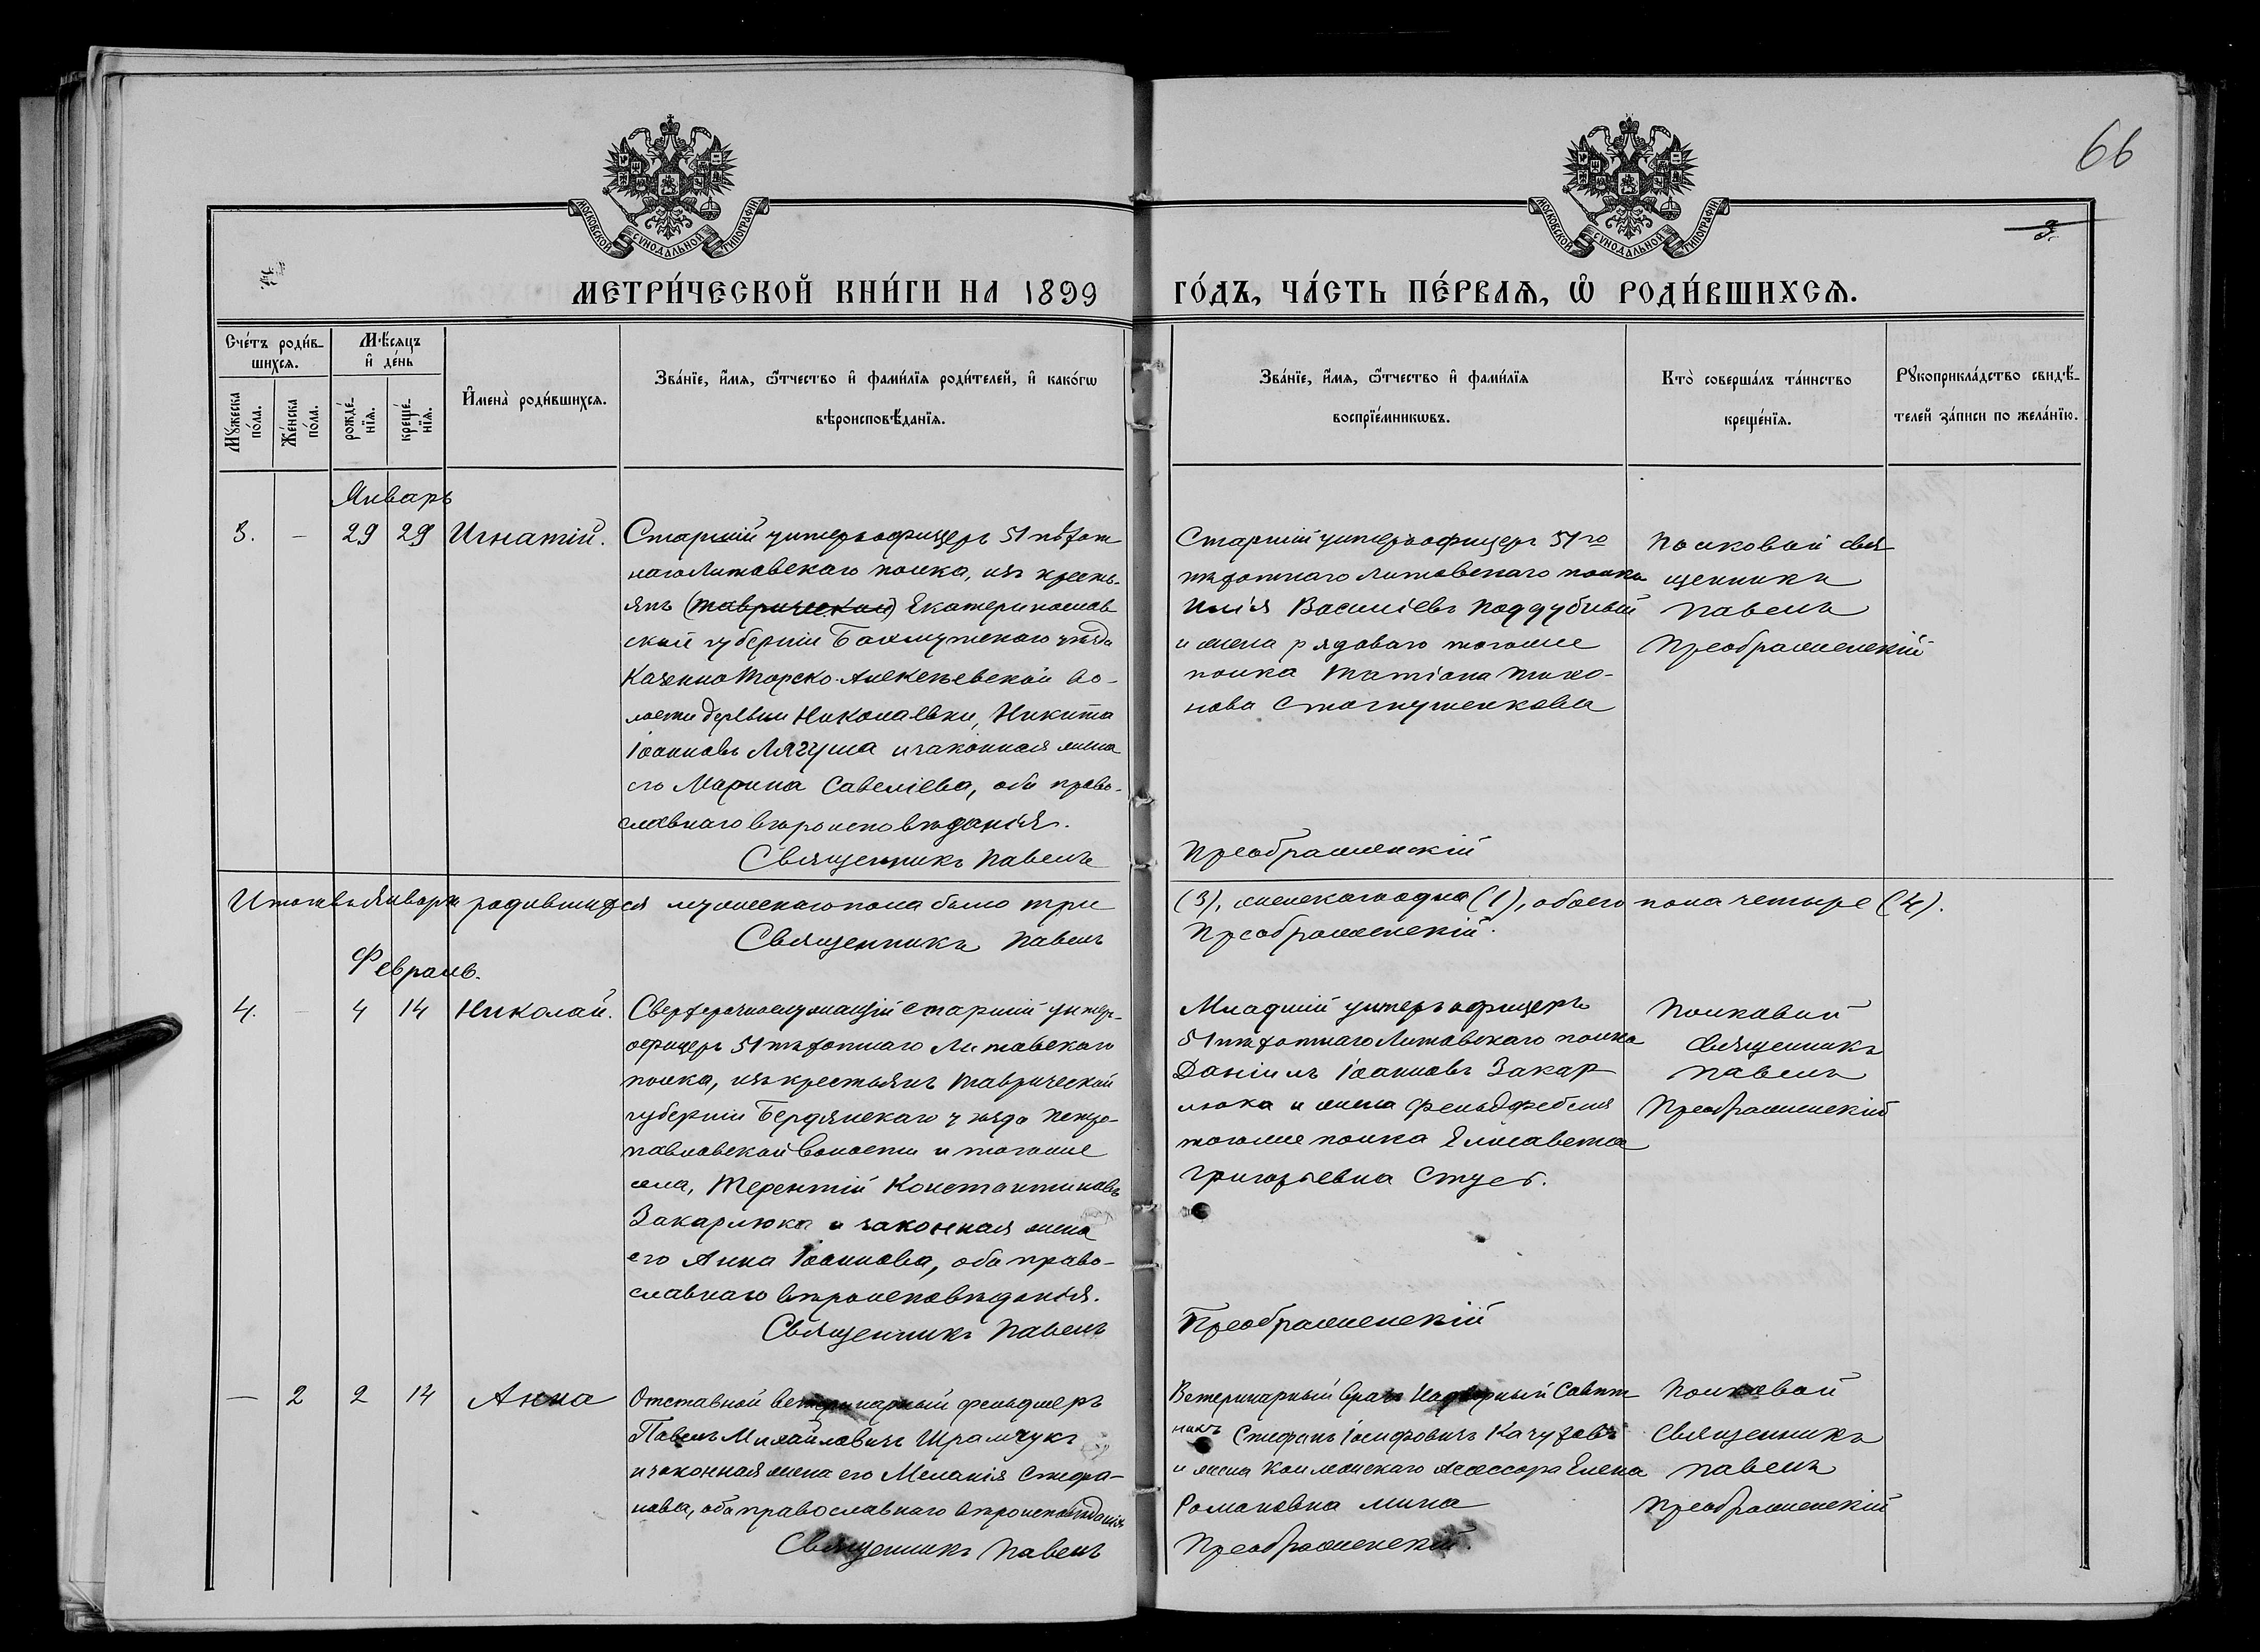 66
3.
МОСКОВСКОЙ СѴНОДАЛЬНОЙ ТИПОГРАФІИ
МОСКОВСКОЙ СѴНОДАЛЬНОЙ ТИПОГРАФІИ
МЕТРИ́ЧЕСКОЙ КНИ́ГИ НА 1899
ГО́ДЪ, ЧА́СТЬ ПЕ́РВАѦ, Ѡ҆ РОДИ́ВШИХСѦ.
Сче́тъ роди́в-
шихсѧ.
Мѣ́сѧцъ
и҆ де́нь
Му́жеска
по́ла.
Же́нска
по́ла.
рожде́-
нїѧ.
креще́-
нїѧ.
И҆мена̀ роди́вшихсѧ.
Зва́нїе, и҆́мѧ, ѻ҆́тчество и҆ фами́лїѧ роди́телей, и҆ како́гѡ
вѣроисповѣ́данїѧ.
Зва́нїе, и҆́мѧ, ѻ҆́тчество и҆ фами́лїѧ
воспрїе́мникѡвъ.
Кто̀ соверша́лъ та́инство
креще́нїѧ.
Рукоприкла́дство свидѣ́-
телей за́писи по жела́нїю.
Январь
3. - 29 29 Игнатій.
Старшій унтеръ офицеръ 51 пѣхот
наго Литовскаго полка, изъ кресть-
янъ (Таврической) Екатеринослав
ской губерніи Бахмутскаго уѣзда
Казенно Торско-Алексѣевской во-
лости деревни Николаевки, Никита
Іоанновъ Лягуша и законная жена
его Марина Савеліева, оба право-
славнаго вѣроисповѣданія.
Священникъ Павелъ
Старшій унтеръ офицеръ 51го
пѣхотнаго Литовскаго полка
Илія Василіевъ Поддубный
и жена рядоваго тогоже
полка Татіана Тихо-
нова
Преображенскій
Полковой свя
щенникъ
Павелъ
Преображенскій
Итого въ Январѣ родившихся мужескаго пола было три
(3), женскаго одна (1), обоего пола четыре (4).
Священникъ Павелъ
Преображенскій.
Февраль.
4. - 4 14 Николай.
Сверхсрочнослужащій старшій унтеръ-
офицеръ 51 пѣхотнаго Литовскаго
полка, изъ крестьянъ Таврической
губерніи Бердянскаго уѣзда Петро-
павловской волости и тогоже
села, Терентій Константиновъ
Закарлюка и законная жена
его Анна Іоаннова, оба право-
славнаго вѣроисповѣданія.
Священникъ Павелъ
Младшій унтеръ офицеръ
51 пѣхотнаго Литовскаго полка
Даніилъ Іоанновъ Закар
люка и жена фельдфебеля
тогоже полка Елисавета
Григорьевна
Преображенскій
Полковой
Священникъ
Павелъ
Преображенскій
— 2 2 14 Анна
Отставной ветеринарный фельдшеръ
Павелъ Михайловичъ Шрамчукъ
и законная жена его Меланія Стефа-
новна, оба православнаго вѣроисповѣданія
Священникъ Павелъ
Ветеринарный врачъ Надворный Совѣт
никъ Стефанъ Іосифовичъ
и жена Коллежскаго Асессора Елена
Романовна
Преображенскій.
Полковой
Священникъ
Павелъ
Преображенскій